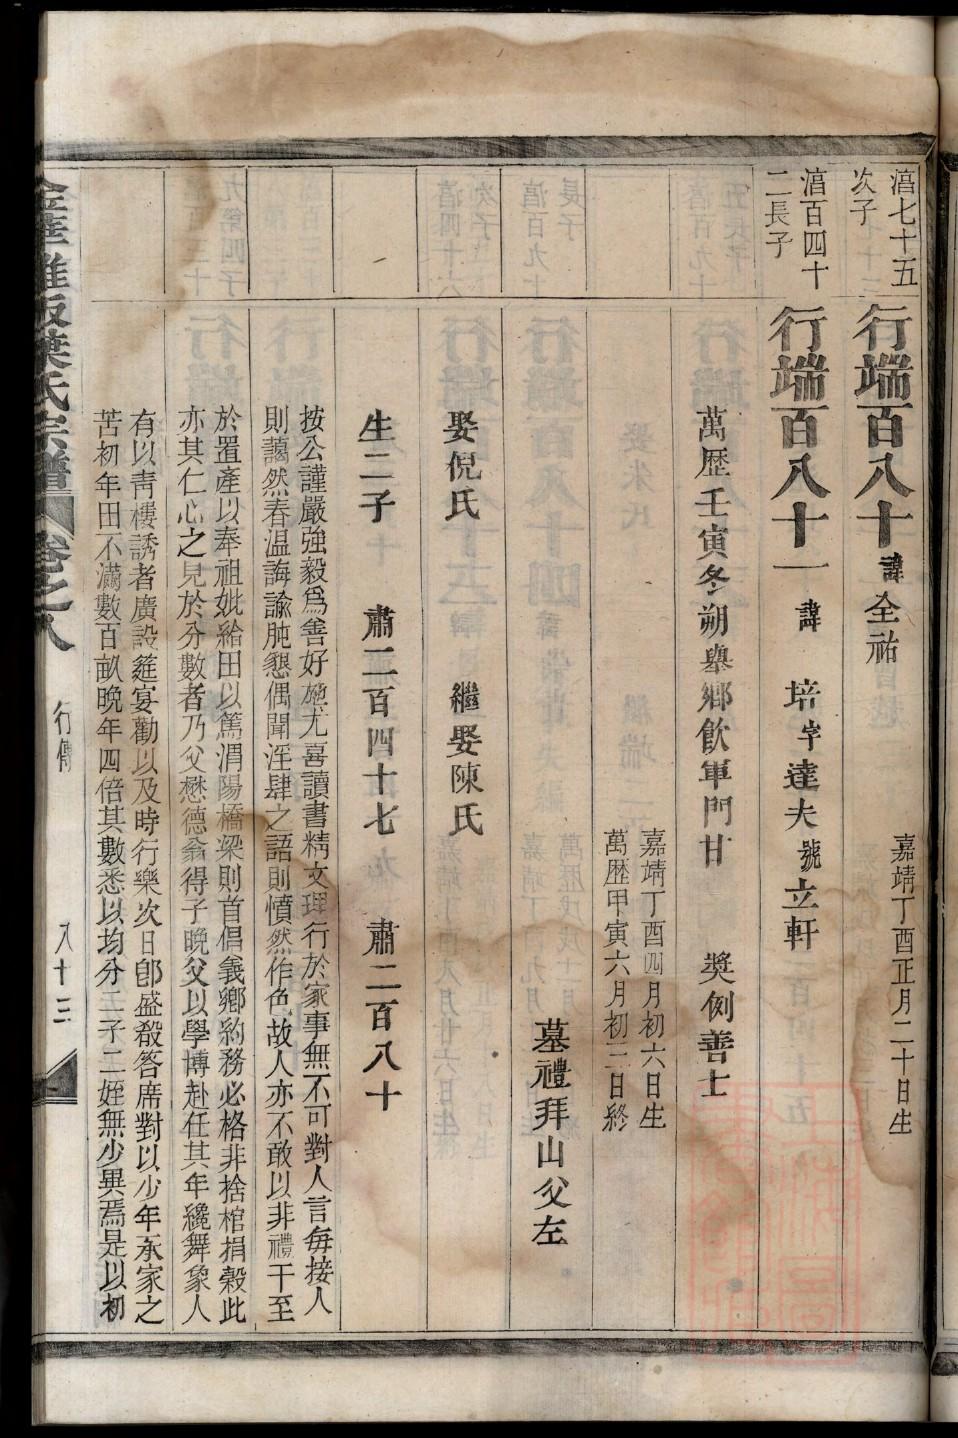 湻七十五
次子
行端百八十諱全祐
嘉靖丁酉正月二十日生
湻百四十
二長子
行端百八十一諱 培字達夫號立軒
萬歷壬寅冬朔舉鄉飲軍門甘 奬例善士
嘉靖丁酉四月初六日生
萬歷甲寅六月初三日終
墓禮拜山父左
娶倪氏 繼娶陳氏
生二子 肅二百四十七 肅二百八十
按公謹嚴強毅爲善好施尤喜讀書精文理行於家事無不可對人言每接人
則藹然春温誨諭肫懇偶聞淫肆之語則憤然作色故人亦不敢以非禮干至
於置產以奉祖妣給田以篤渭陽橋梁則首倡義鄉約務必格非捨棺捐穀此
亦其仁心之見於分數者乃父懋德翁得子晚父以學博赴任其年纔舞象人
有以靑樓誘者廣設筵宴勸以及時行樂次日卽盛殽答席對以少年承家之
苦初年田不滿數百畝晚年四倍其數悉以均分二子二姪無少異焉是以初
金華 坂葉氏宗譜 卷之八 行傳 八十三